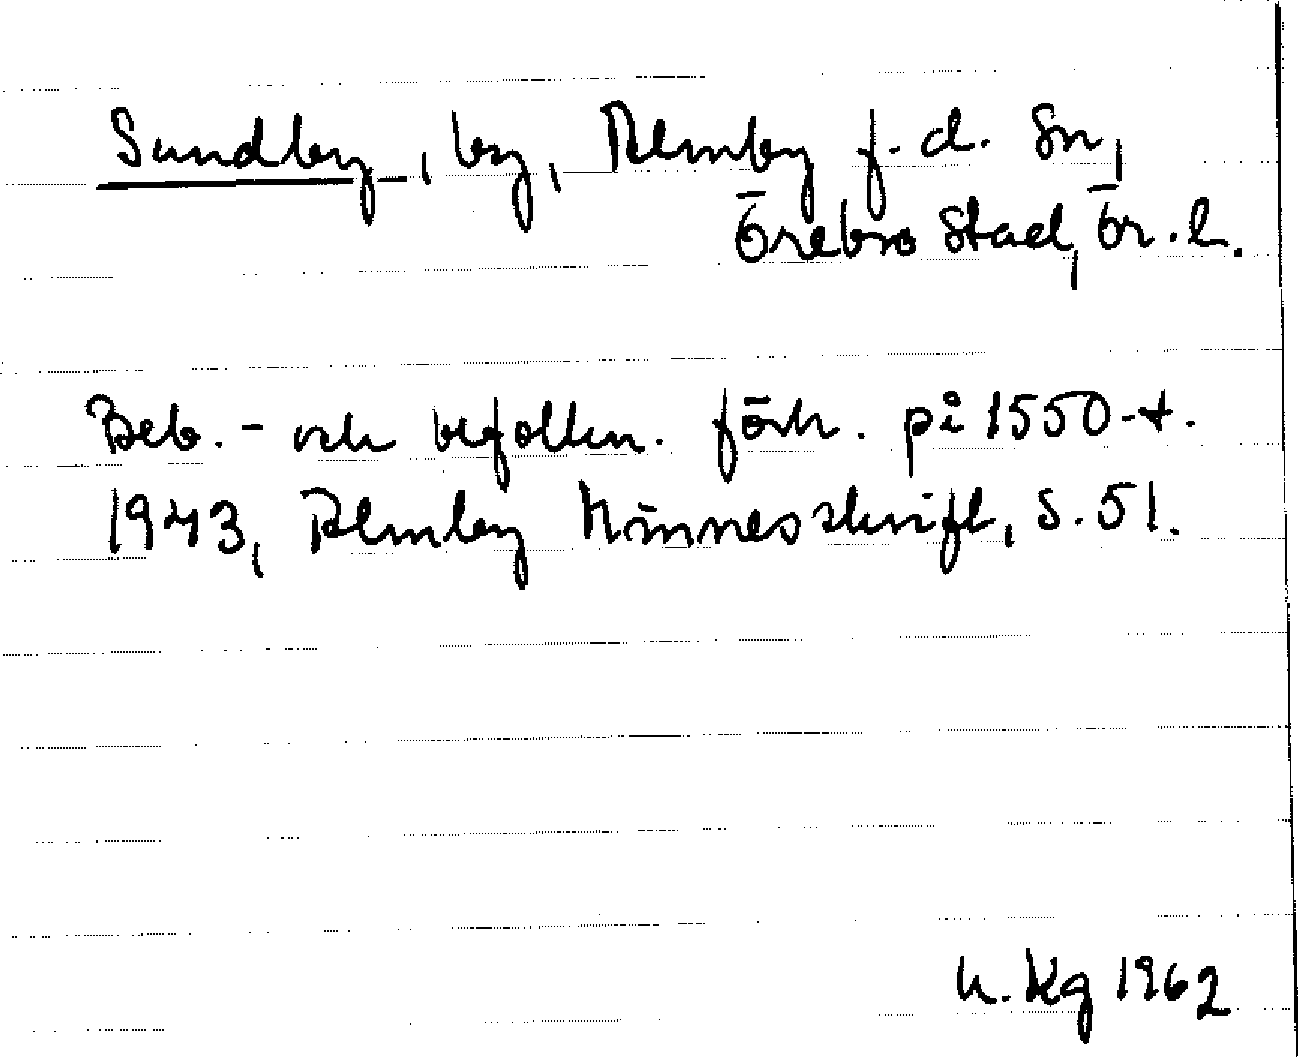 Sundby, by, Almby f.d. sn,
Örebro stad, Ör.l.
Beb.- och befolkn. förh. på 1550-t.
1943, Almby Minnesskrift, s. 51.
K.Kg 1962